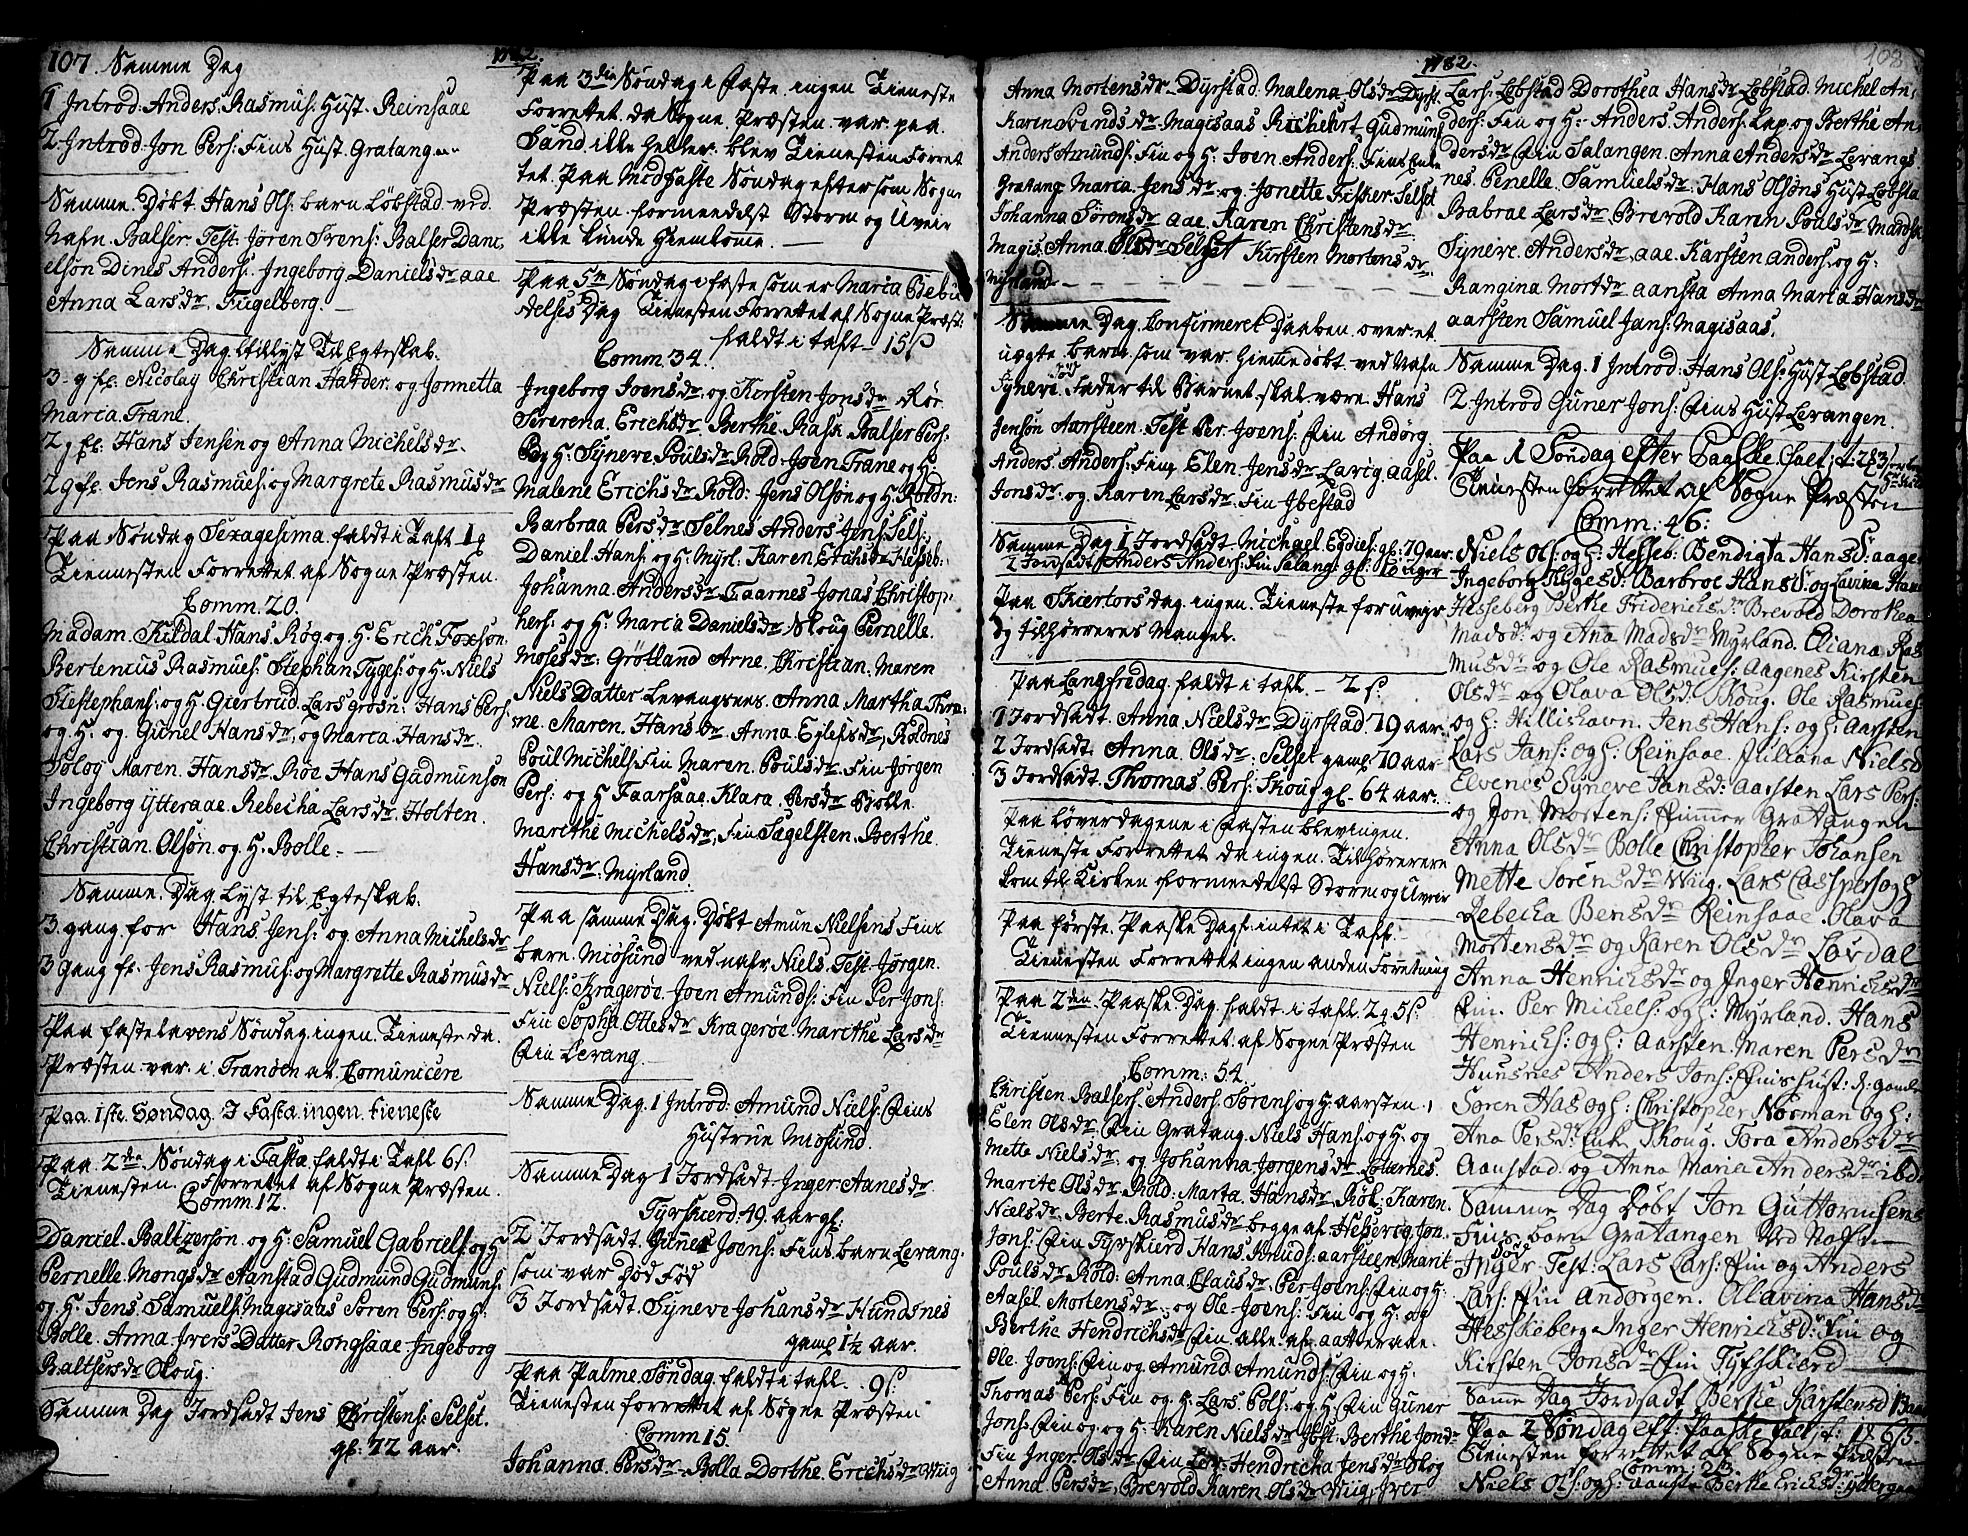 107. Samme Dag
1 Introd: Anders Rasmus: Hust. Reinsaae
2 Introd Jon Pers: Fins Hust. Gratang
Samme. Døbt Hans Ols: barn Løbstad ved
Nafn. Balser. Test. Jøren Svens: Balser Dani
elsøn Dines Anders: Ingeborg Daniels dr aae
Anna Lars dr Fugelberg.
Samme Dag tillyst Til Egteskab.
3-g fl: Nicolay Christian Harder og Jonnetta
Maria Trane.
2 g fl: Hans Jensen og Anna Michels dr.
2 g fl. Jens Rasmues: og Margrete Rasmus dr
Paa Søndag Sexagesima faldt i Tafl 1 g
Tiennesten Forrettet af Sogne Præsten.
Comm. 20.
Madam. Kildal Hans Røg og H: Erich Foxsøn.
Bertenius Rasmues: Stephan Tyges: og H: Niels
Stephans: og H. Giertrud. Lars Grøsn: Hans Pers
og H: og Guriel Hans dr, og Marca Hans dr.
Solog Maren. Hans dr Røe Hans Gudmunson
Ingeborg ytteraae. Rebecha. Lars dr Holten.
Christian. Olsøn. og H. Bolle.
Samme. Dag Lyst til Egteskab.
3. gang. for Hans Jens: og. Anna Michels dr
3 gang fl. Jens Rasmus: og Margrette Rasmus dr
Paa fastelavens Søndag ingen. Tieneste da.
Præsten. var. i. Tranøen at. Comunicere
Paa. 1ste. Søndag. I Fasta. ingen. tieneste
Paa. 2den. Søndag i Fasta. faldt i Tafl 6 s.
Tienesten. Forrettet af Sogne Præsten.
Comm. 12.
Daniel. Baltzersøn. og H: Samuel Gabriels og H
Pernelle. Mongs dr Aanstad Gudmund Gudmuns:
og H. Jens. Samuels: Magisaas Søren Pers: og H:
Bolle. Anna Ivers Datter Rongsaae. Ingeborg
Baltsers dr Skoug.
Samme Dag Jordsadt Jens Christens: Selset.
gl: 72 aar.
1782.
Paa 3die Søndag i Faste. ingen Tieneste
Forrettet. da Sogne. Præsten var. paa.
Sand. ikke heller. blev Tienesten Forret
tet. Paa Midfaste Søndag efter som Sogne
Præsten. formedelst Storm og Uveir
ikke kunde hiemkomme.
Paa 5te Søndag i faste som er Maria Bebu
delses Dag Tienesten Forrettet af Sogne Præst:
faldt i tafl - 15 s
Comm. 34.
Ingeborg Joens dr og Kirsten Jons dr Rør
Sererena. Erichs dr Berthe. Rask Balser Pers:
og H: Syneve. Pouls dr Rold. Joen Trane og H:
Malene Erichs dr Rold: Jens Olsøn og H. Roldn:
Barbraa Pers dr Selnes Anders Jens: Sels:
Daniel. Hans: og H: Myrl: Karen Erichs dr Hesseb:
Johanna. Anders dr Faarnes Jonas Christop
hers: og H: Marca Daniels dr Skoug Pernelle.
Moses dr: Grøtland Arne. Christian. Maren
Niels Datter Levangsnes. Anna. Martha Thro
ne. Maren. Hans dr Anna. Eylefs dr Roldnes
Poul Michels: Fin Maren. Pouls dr Fin Jørgen
Pers: og H Faarsaae. Klara. Pers dr Bolle
Marithe Michels dr, Fin Sagelsten Berthe.
Hans dr: Myrland.
Paa samme Dag. Døbt Amun Nielsens Fins
barn. Miøsund ved nafn Niels. Test. Jørgen.
Niels: Kragerøe. Joen Amunds: Fin Per Jons:
Fin Sopha Ottes dr Kragerøe. Marithe Lars dr
Fin Levang.
Samme Dag. 1 Introd: Amund Niels: Fins
Hustrue Miøsund.
Samme Dag 1 Jordsadt. Inger Aanes dr
Tyrskierd: 49. aar gl:
2 Jordsadt Gunner Joens: Fins barn Levang.
som var Død Fød
3 Jordsadt. Syneve Johans dr Hundsnes
gaml 1½ aar.
Paa Palme. Søndag faldt i tafl.. 9 s
Tienesten forrettet af Sogne Præsten
Comm 15.
Johanna. Pers dr. Bolla Dorthe. Erichs dr Wiig
1782.
108
Anna Mortens dr. Dyrstad. Malena. Ols dr Dyrst.
Karen Svends dr. Magisaas Richehrt Gudmuns
Anders Amunds: Fin og H: Joen. Anders: Fins Enke
Gratang Marca. Jens dr og Jonette Fisker. Selset
Johanna Sørens dr aae. Karen Christens dr
Magis: Anna Ols dr Selset Kirsten Mortens dr.
Myrland
Samme Dag. Confirmeret Daaben over et
uægte. barn. som var hiemedøbt. ved Nafn
død
Syneve. Fader til Barnet skal være. Hans
Jensøn Aarsteen. Test Per. Joens: Fin Andørg.
Anders. Anders: Fin, Elen Jens dr Lavig Aasel.
Jons dr. og Karen Lars dr. Fin Ibestad
Samme Dag 1 Jordsadt. Michael. Egdies: gl: 79 aar
2 Jordsadt Anders Anders: Fin Salang: gl. 18 uger
Paa Skiertors dag. ingen. Tieneste for uveyr
og tilhørreres Mangel.
Paa Langfredag. faldt i tafl. - 2 s.
1 Jordsadt. Anna. Niels dr Dyrstad. 79 aar.
2 Jordsadt. Anna. Ols dr Selset gaml 70 aar
3 Jordsadt. Thomas. Pers: Skoug gl. 64 aar.
Paa Løverdagene i Fasten blev ingen.
Tieneste Forrettet da ingen. Tilhørerere
kom til Kirken formedelst Storm og Uveir
Paa første. Paaske Dag f: intet i Tafl.
Tienesten Forrettet ingen anden Forretning
Paa 2den. Paaske. Dag. faldt. i tafl. 2 g 5 s.
Tiennesten Forrettet. af Sogne Præsten
Comm: 54.
Christen Balsers: Anders. Sørens og H: aarsten.
Elen Ols dr. Fin Gratang. Niels Hans: og H: og
Mette Niels dr. og Johanna. Jørgens dr Løternes.
Marite Ols dr. Rold: Marta. Hans dr, Røk: Karen.
Niels dr, Berte. Rasmus dr begge af. Hesberig Jon.
Jons: Fin Tyrskierd. Hans. Knuds: aarsteen, Marit
Pouls dr Rold: Anna Claus dr. Per Joens: Fin og H:
Aasel. Mortens dr. og Ole Joens: Fin og H: og
Berthe Hendrichs dr Fin alle af. aatteraae.
Ole. Joens: Fin og Amund Amunds: Fin og H.
Thomas Pers: Fin og. H: Lars. Pols: og H Fin Guner
Jons: Fin og og H: Karen Niels dr Ibst: Berthe Jons dr
Fin Inger. Ols dr Fin Hendricha Jens dr Skog
Anna. Pers dr, Brevold Karen. Ols dr Wiig, Iver
Lars: Løbstad Dorothea Hans dr Løbstad. Michel An
ders: Fin og H: Anders. Anders: Lap. og Berthe An
ders dr Fin Salangen. Anna Anders dr Levangs
nes. Penelle. Samuels dr. Hans Olsøns Hust Løbsta
Babrae Lars dr Brevold Karen Pouls dr Mands
Syneve. Anders dr, aae. Karsten anders: og H:
Rangina Mort dr aansta Anna Maria Hans dr
aarsten Samuel Jans: Magisaas.
Samme Dag. 1 Introd: Hans Ols: Hust Løbstad
2. Introd Guner Jons: Fins Hust Levangen.
Paa 1 Søndag efter Paaske falt: i t: 2 g 3 s
Tienesten forrettet af Sogne Præsten
Comm: 46:
Niels Ols: og H: Hesseb: Bendigta Hans d: aage
Ingeborg Tyges d: Barbroe Hans d: og Lavina Hans
Hesseberg Berthe Friderichs dr Brevold Dorothea
Mads dr og Ana Mads dr Myrland. Eliana Ras
mus dr og Ole Rasmues: Aagenes Kirsten
Ols dr og Olava Ols d: Skoug. Ole Rasmues:
og H: Hillishavn. Jens Hans: og H: aarsten
Lars Jans: og H: Reinsaae. Juliana Niels d
Elvenes Syneve Jans d: Aarsten Lars Pers:
og Jon Mortens: Finner Gratangen
Anna Ols dr Bolle Christopher Johansen
Mette Sørens dr Wiig. Lars Caspers og H
Rebecka Bens dr Reinsaae. Olava
Mortens dr og Karen Ols dr Løvdal
Anna Henrichs dr og Inger Henrichs dr
Fin. Per Michels: og H: Myrland. Hans
Henrichs: og H: Aarsten. Maren Pers dr
Hunsnes Anders Jons: Fins Hust: d: gaml
Søren Has og H: Christopher Norman og H:
Ana Pers dr Enk Skoug. Tora Anders dr
Aanstad og Anna Maria Anders dr ibd
Samme Dag Døbt Jon Guttormsens
Fins barn Gratangen Ved Nafn
død
Inger Test: Lars Lars: Fin og Anders
Lars: Fin Andørgen. Olavina Hans dr
Hesseberg Inger Henrichs d: Fin og
Kirsten Jons dr Fin Tyfskierd
Samme Dag Jordsadt Berthe Karstens d 13 aar
Paa 2 Søndag eft: Paaske falt: t: 18 6 s
Tienesten forrettet af Sogne Præsten
Comm: 23.
Niels Ols: og H: aanst: Berthe Erichs d: yttergaa